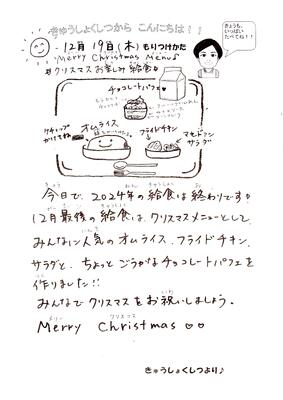 きゅうしょくしつから こんにちは！！
きょうも、
いっぱい
たべてね！！
12月 19日(木) もりつけかた
Merry Christmas Menu♪
#クリスマスお楽しみ給食☆
チョコレートパフェ♥
ケチャップ
かけてね
オムライス
フライドチキン
マセドアン
サラダ
今日で、2024年の給食は終わりです。
12月最後の給食は、クリスマスメニューとして、
みんなに人気のオムライス、フライドチキン、
サラダと、ちょっとごうかなチョコレートパフェを
作りました!!
みんなでクリスマスをお祝いしましょう。
メリー クリスマス
Merry Christmas ♡♡
きゅうしょくしつより♪